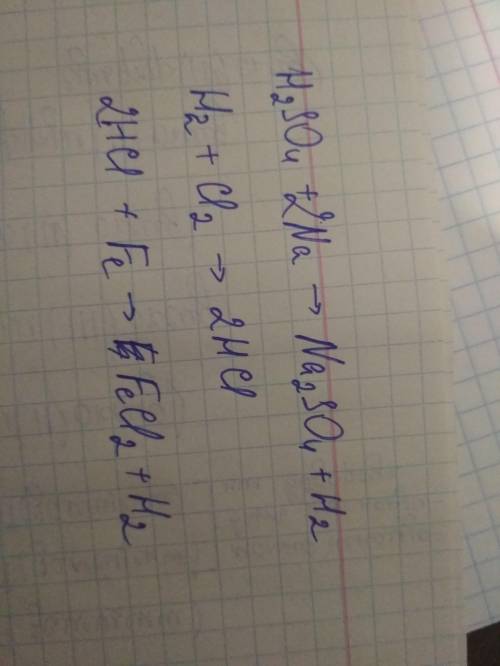 H₂SO₄ + 2Na → Na₂SO₄ + H₂
H₂ + Cl₂ → 2HCl
2HCl + Fe → FeCl₂ + H₂